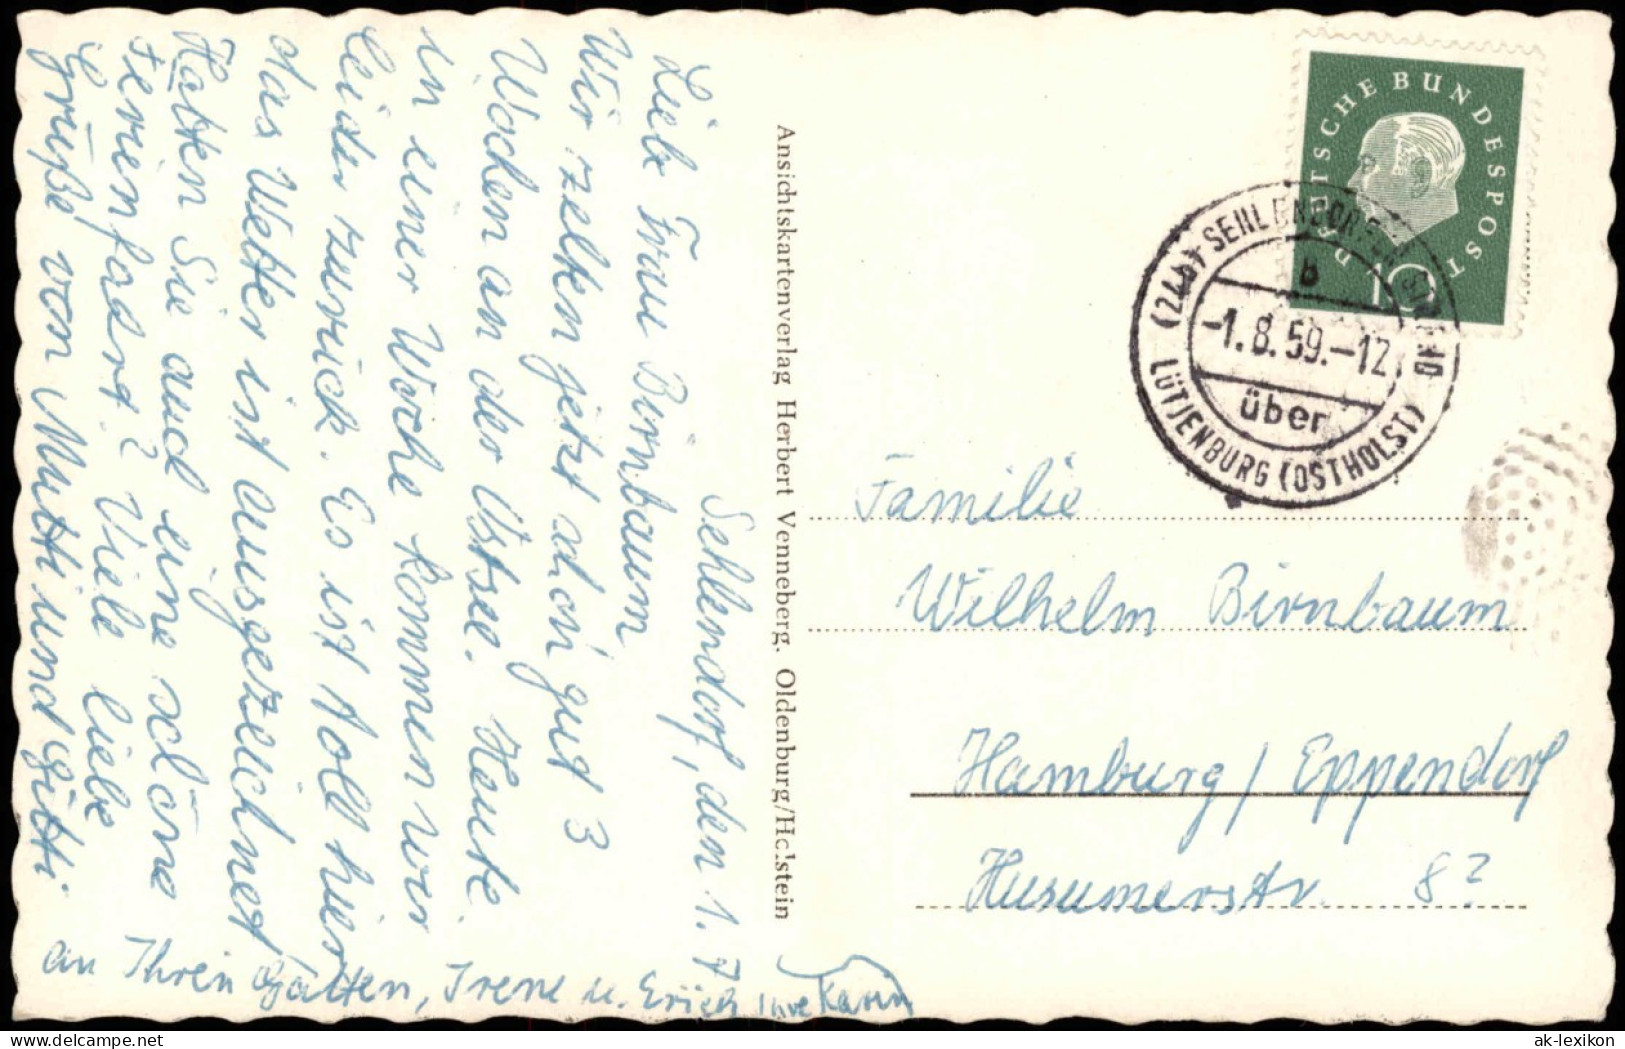 Sehlendorf, den 1. 7
Liebe Frau Birnbaum
Wir zelten jetzt schon gut 3
Wochen an der Ostsee. Heute
in einer Woche kommen wir
leider zurück. Es ist toll hier
das Wetter ist ausgezeichnet
Hatten Sie auch eine schöne
Ferienfahrt? Viele liebe
Grüße von Mutti und Gitti
an Ihren Gatten, Irene u. Erich Ihre Karin
Ansichtskartenverlag Herbert Venneberg. Oldenburg/Holstein
DEUTSCHE BUNDESPOST
10
(24b) SEHLENDORFER STRAND
b
-1.8.59.-12
über
LÜTJENBURG (OSTHOLST)
Familie
Wilhelm Birnbaum
Hamburg/Eppendorf
Husumerstr. 8?
ak-lexikon